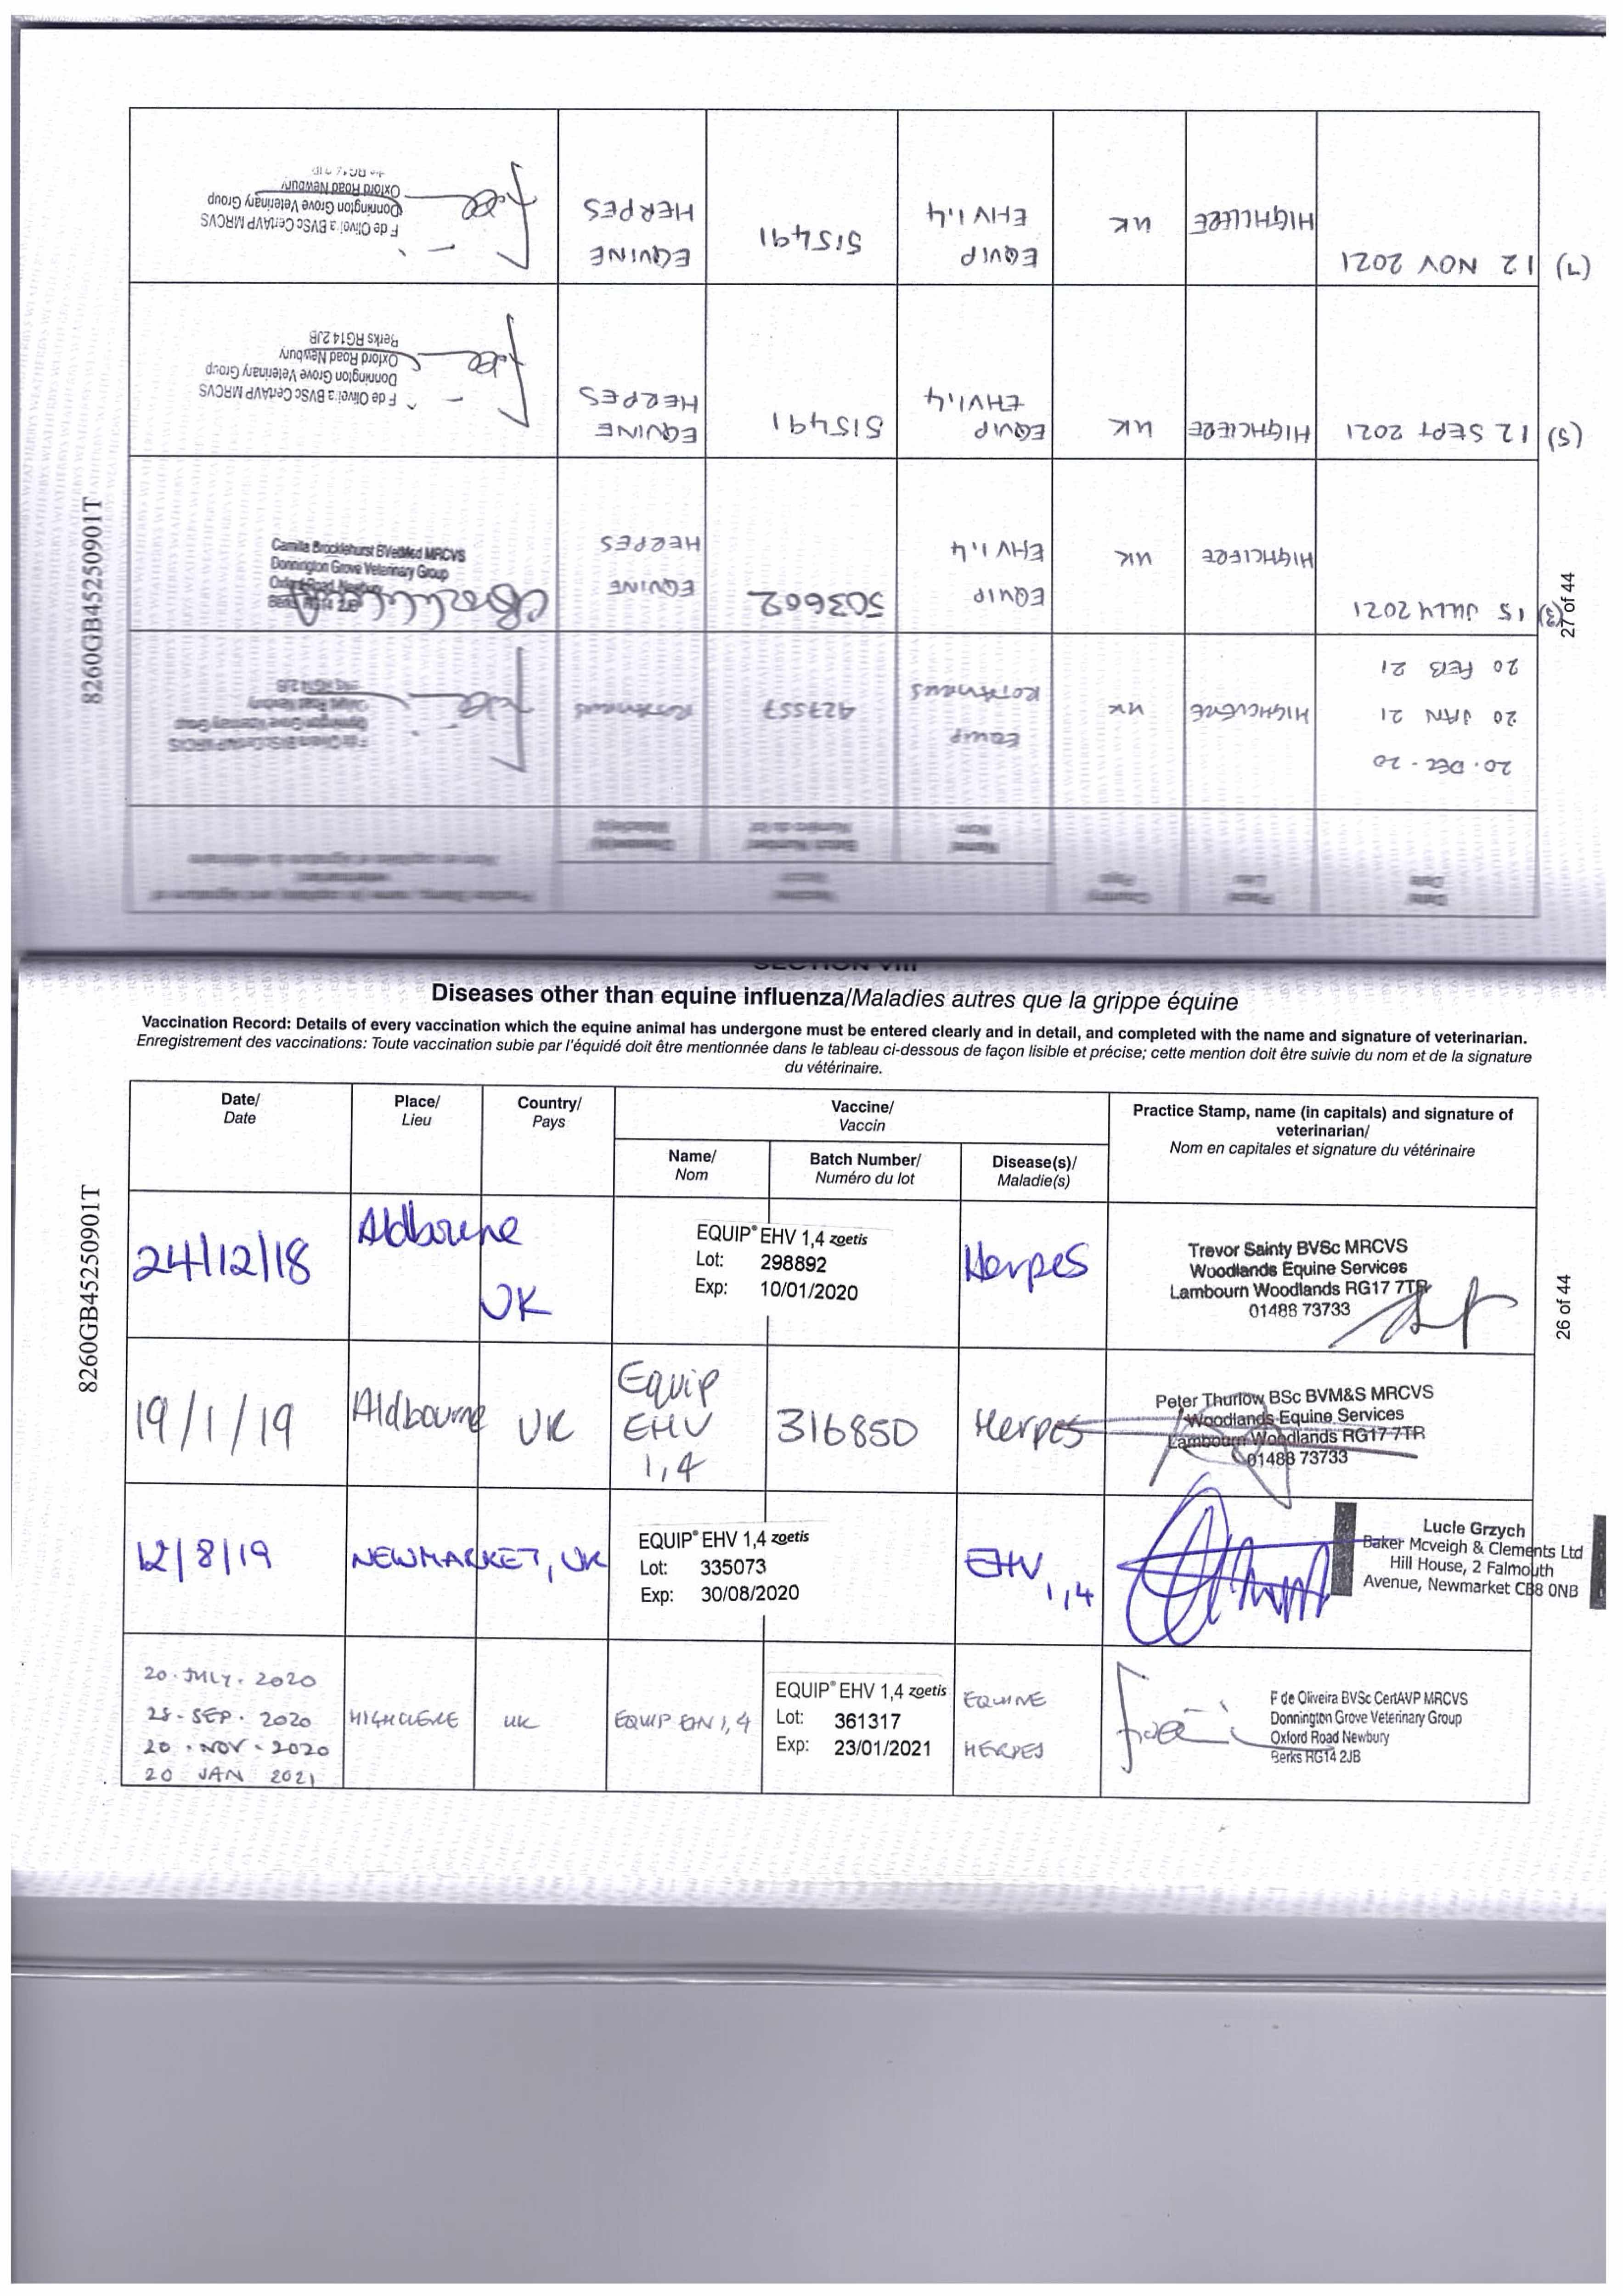 8260GB45250901T
27 of 44
Date/
Date
Place/
Lieu
Country/
Pays
Vaccine/
Vaccin
Name/
Nom
Batch Number/
Numéro du lot
Disease(s)/
Maladie(s)
Practice Stamp, name (in capitals) and signature of
veterinarian/
Nom en capitales et signature du vétérinaire
20. DEC - 20
20 JAN 21
20 FEB 21
HIGHCLERE
UK
EQUIP
ROTAVIRUS
427557
ROTAVIRUS
F de Oliveira BVSc CertAVP MRCVS
Donnington Grove Veterinary Group
Oxford Road Newbury
Berks RG14 2JB
(3) 15 JULY 2021
HIGHCLERE
UK
EQUIP
EHV 1,4
503602
EQUINE
HERPES
Camilla Brocklehurst BVetMed MRCVS
Donnington Grove Veterinary Group
Oxford Road, Newbury
Berks RG14 2JB
(5) 12 SEPT 2021
HIGHCLERE
UK
EQUIP
EHV1,4
515491
EQUINE
HERPES
F de Oliveira BVSc CertAVP MRCVS
Donnington Grove Veterinary Group
Oxford Road Newbury
Berks RG14 2JB
(7) 12 NOV 2021
HIGHCLERE
UK
EQUIP
EHV1,4
515491
EQUINE
HERPES
F de Oliveira BVSc CertAVP MRCVS
Donnington Grove Veterinary Group
Oxford Road Newbury
SECTION VIII
Diseases other than equine influenza/Maladies autres que la grippe équine
Vaccination Record: Details of every vaccination which the equine animal has undergone must be entered clearly and in detail, and completed with the name and signature of veterinarian.
Enregistrement des vaccinations: Toute vaccination subie par l'équidé doit être mentionnée dans le tableau ci-dessous de façon lisible et précise; cette mention doit être suivie du nom et de la signature
du vétérinaire.
8260GB45250901T
26 of 44
Date/
Date
Place/
Lieu
Country/
Pays
Vaccine/
Vaccin
Name/
Nom
Batch Number/
Numéro du lot
Disease(s)/
Maladie(s)
Practice Stamp, name (in capitals) and signature of
veterinarian/
Nom en capitales et signature du vétérinaire
24/12/18
Aldbourne
UK
EQUIP® EHV 1,4 zoetis
Lot: 298892
Exp: 10/01/2020
Herpes
Trevor Sainty BVSc MRCVS
Woodlands Equine Services
Lambourn Woodlands RG17 7TR
01488 73733
19/1/19
Aldbourne
UK
Equip
EHV
1,4
316850
Herpes
Peter Thurlow BSc BVM&S MRCVS
Woodlands Equine Services
Lambourn Woodlands RG17 7TR
01488 73733
12/8/19
NEWMARKET, UK
EQUIP® EHV 1,4 zoetis
Lot: 335073
Exp: 30/08/2020
EHV
1,4
Lucie Grzych
Baker Mcveigh & Clements Ltd
Hill House, 2 Falmouth
Avenue, Newmarket CB8 0NB
20. JULY. 2020
25. SEP. 2020
20. NOV. 2020
20 JAN 2021
HIGHCLERE
UK
EQUIP EHV 1,4
EQUIP® EHV 1,4 zoetis
Lot: 361317
Exp: 23/01/2021
EQUINE
HERPES
F de Oliveira BVSc CertAVP MRCVS
Donnington Grove Veterinary Group
Oxford Road Newbury
Berks RG14 2JB